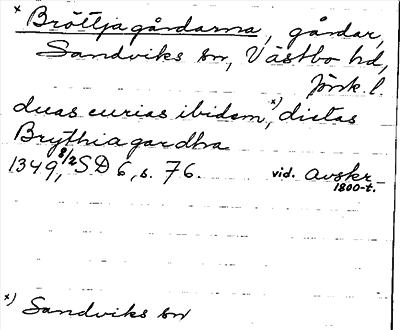 × Bröttjagårdarna, gårdar,
Sandviks sn, Västbo hd,
Jönk. l.
duas curias ibidem,×) dictas
Brythiagardha
1349, 8/2 SD 6, s. 76. vid. avskr.
1800-t.
×) Sandviks sn